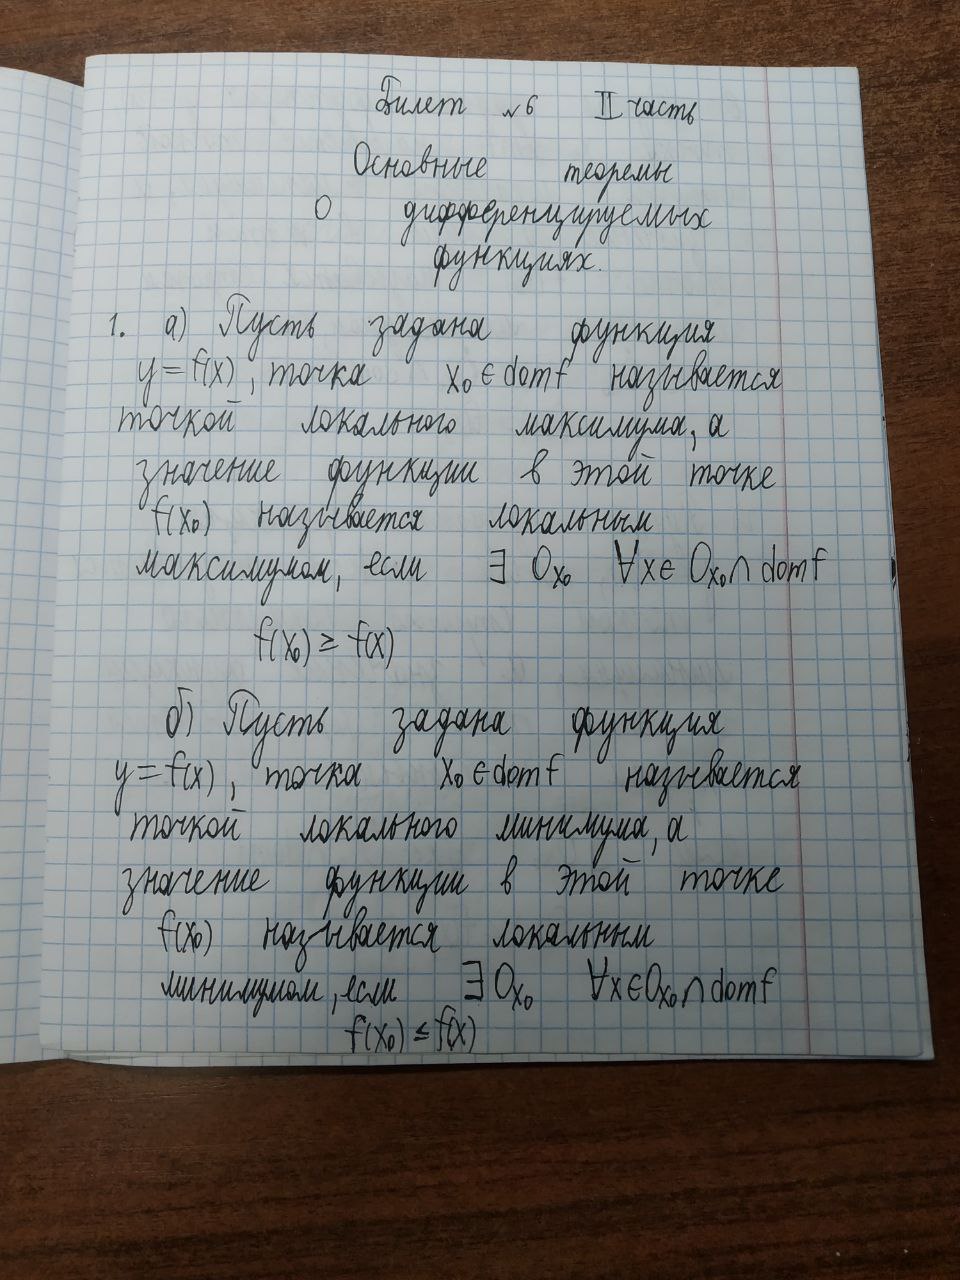 Билет №6 II часть
Основные теоремы
О дифференцируемых
функциях.
1. а) Пусть задана функция
y = f(x), точка x₀ ∈ domf называется
точкой локального максимума, а
значение функции в этой точке
f(x₀) называется локальным
максимумом, если ∃ Oₓ₀ ∀x ∈ Oₓ₀ ∩ domf
f(x₀) ≥ f(x)
б) Пусть задана функция
y = f(x), точка x₀ ∈ domf называется
точкой локального минимума, а
значение функции в этой точке
f(x₀) называется локальным
минимумом, если ∃ Oₓ₀ ∀x ∈ Oₓ₀ ∩ domf
f(x₀) ≤ f(x)